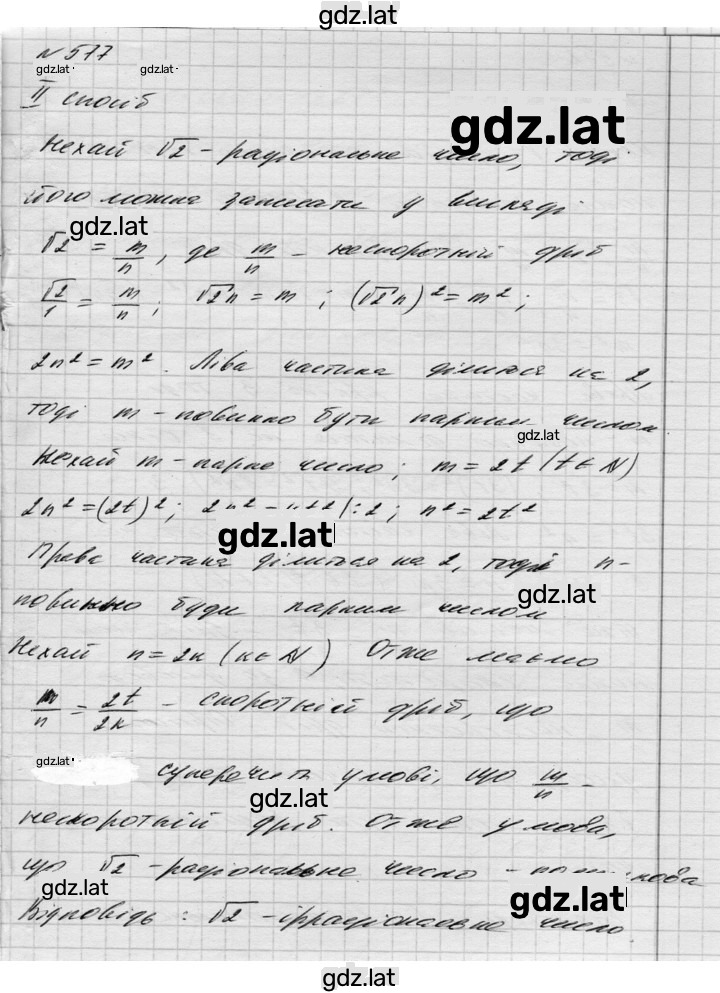 gdz.lat
№577
gdz.lat gdz.lat
II спосіб
gdz.lat
Нехай √2 - раціональне число, тоді
його можна записати у вигляді
gdz.lat
√2 = m/n, де m/n - нескоротній дріб
√2/1 = m/n; √2n = m; (√2n)² = m²;
2n² = m². Ліва частина ділиться на 2,
тоді m - повинно бути парним числом.
gdz.lat
Нехай m - парне число; m = 2t (t∈N)
2n² = (2t)²; |:2; n² = 2t²
gdz.lat
Права частина ділиться на 2, тоді n-
gdz.lat
повинно буди парним числом
Нехай n = 2k (k∈N) Отже маємо
m/n = 2t/2k - скоротній дріб, що
gdz.lat
суперечить умові, що m/n -
gdz.lat
нескоротній дріб. Отже умова,
що √2 - раціональне число -
gdz.lat
gdz.lat
Відповідь: √2 - ірраціональне число
gdz.lat